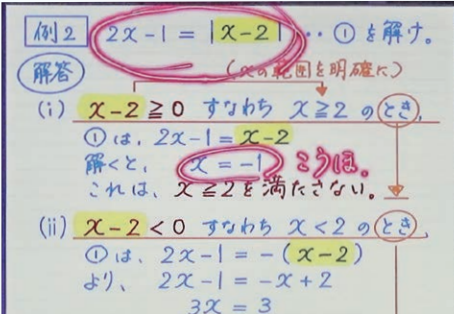 例2 2x-1 = |x-2| ‥① を解け。
解答 (xの範囲を明確に)
(i) x-2≧0 すなわち x≧2 のとき,
①は, 2x-1=x-2
解くと, x=-1 こうほ。
これは, x≧2を満たさない。
(ii) x-2<0 すなわち x<2 のとき,
①は, 2x-1=-(x-2)
より, 2x-1=-x+2
3x=3